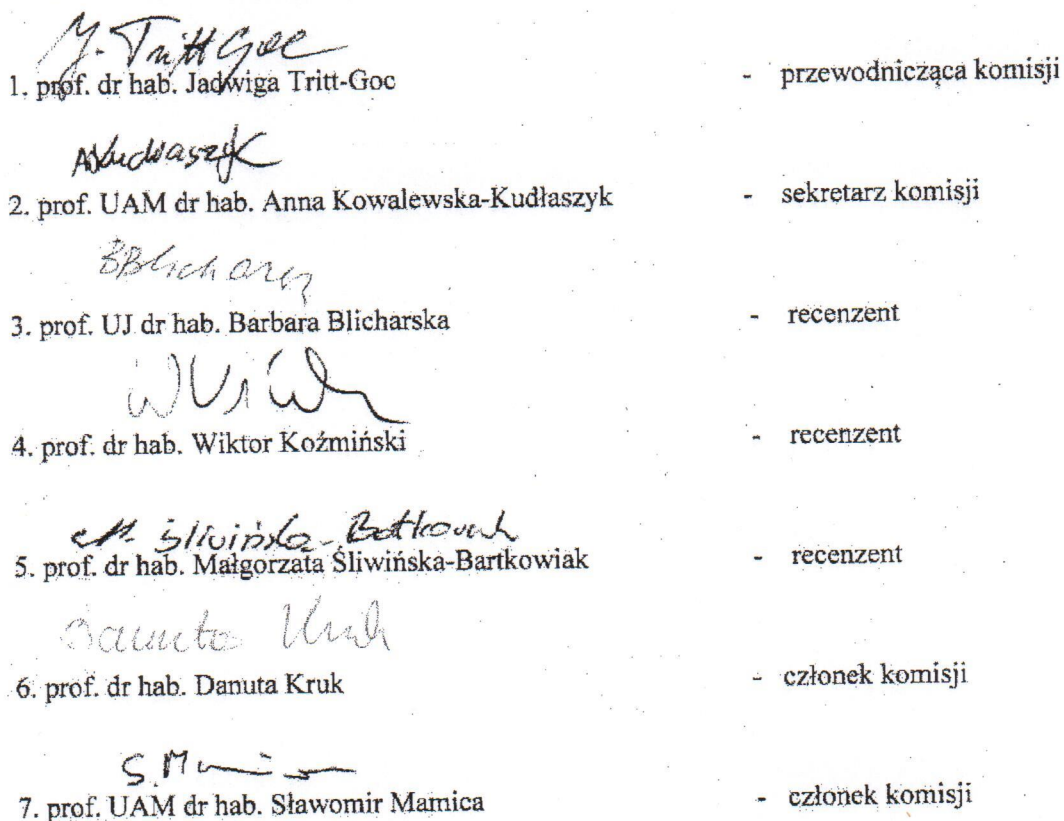 J. Tritt Goc
1. prof. dr hab. Jadwiga Tritt-Goc - przewodnicząca komisji
AKudłaszyk
2. prof. UAM dr hab. Anna Kowalewska-Kudłaszyk - sekretarz komisji
BBlicharz
3. prof. UJ dr hab. Barbara Blicharska - recenzent
4. prof. dr hab. Wiktor Koźmiński - recenzent
M. Śliwińska-Bartkowiak
5. prof. dr hab. Małgorzata Śliwińska-Bartkowiak - recenzent
Danuta Kruk
6. prof. dr hab. Danuta Kruk - członek komisji
7. prof. UAM dr hab. Sławomir Mamica - członek komisji